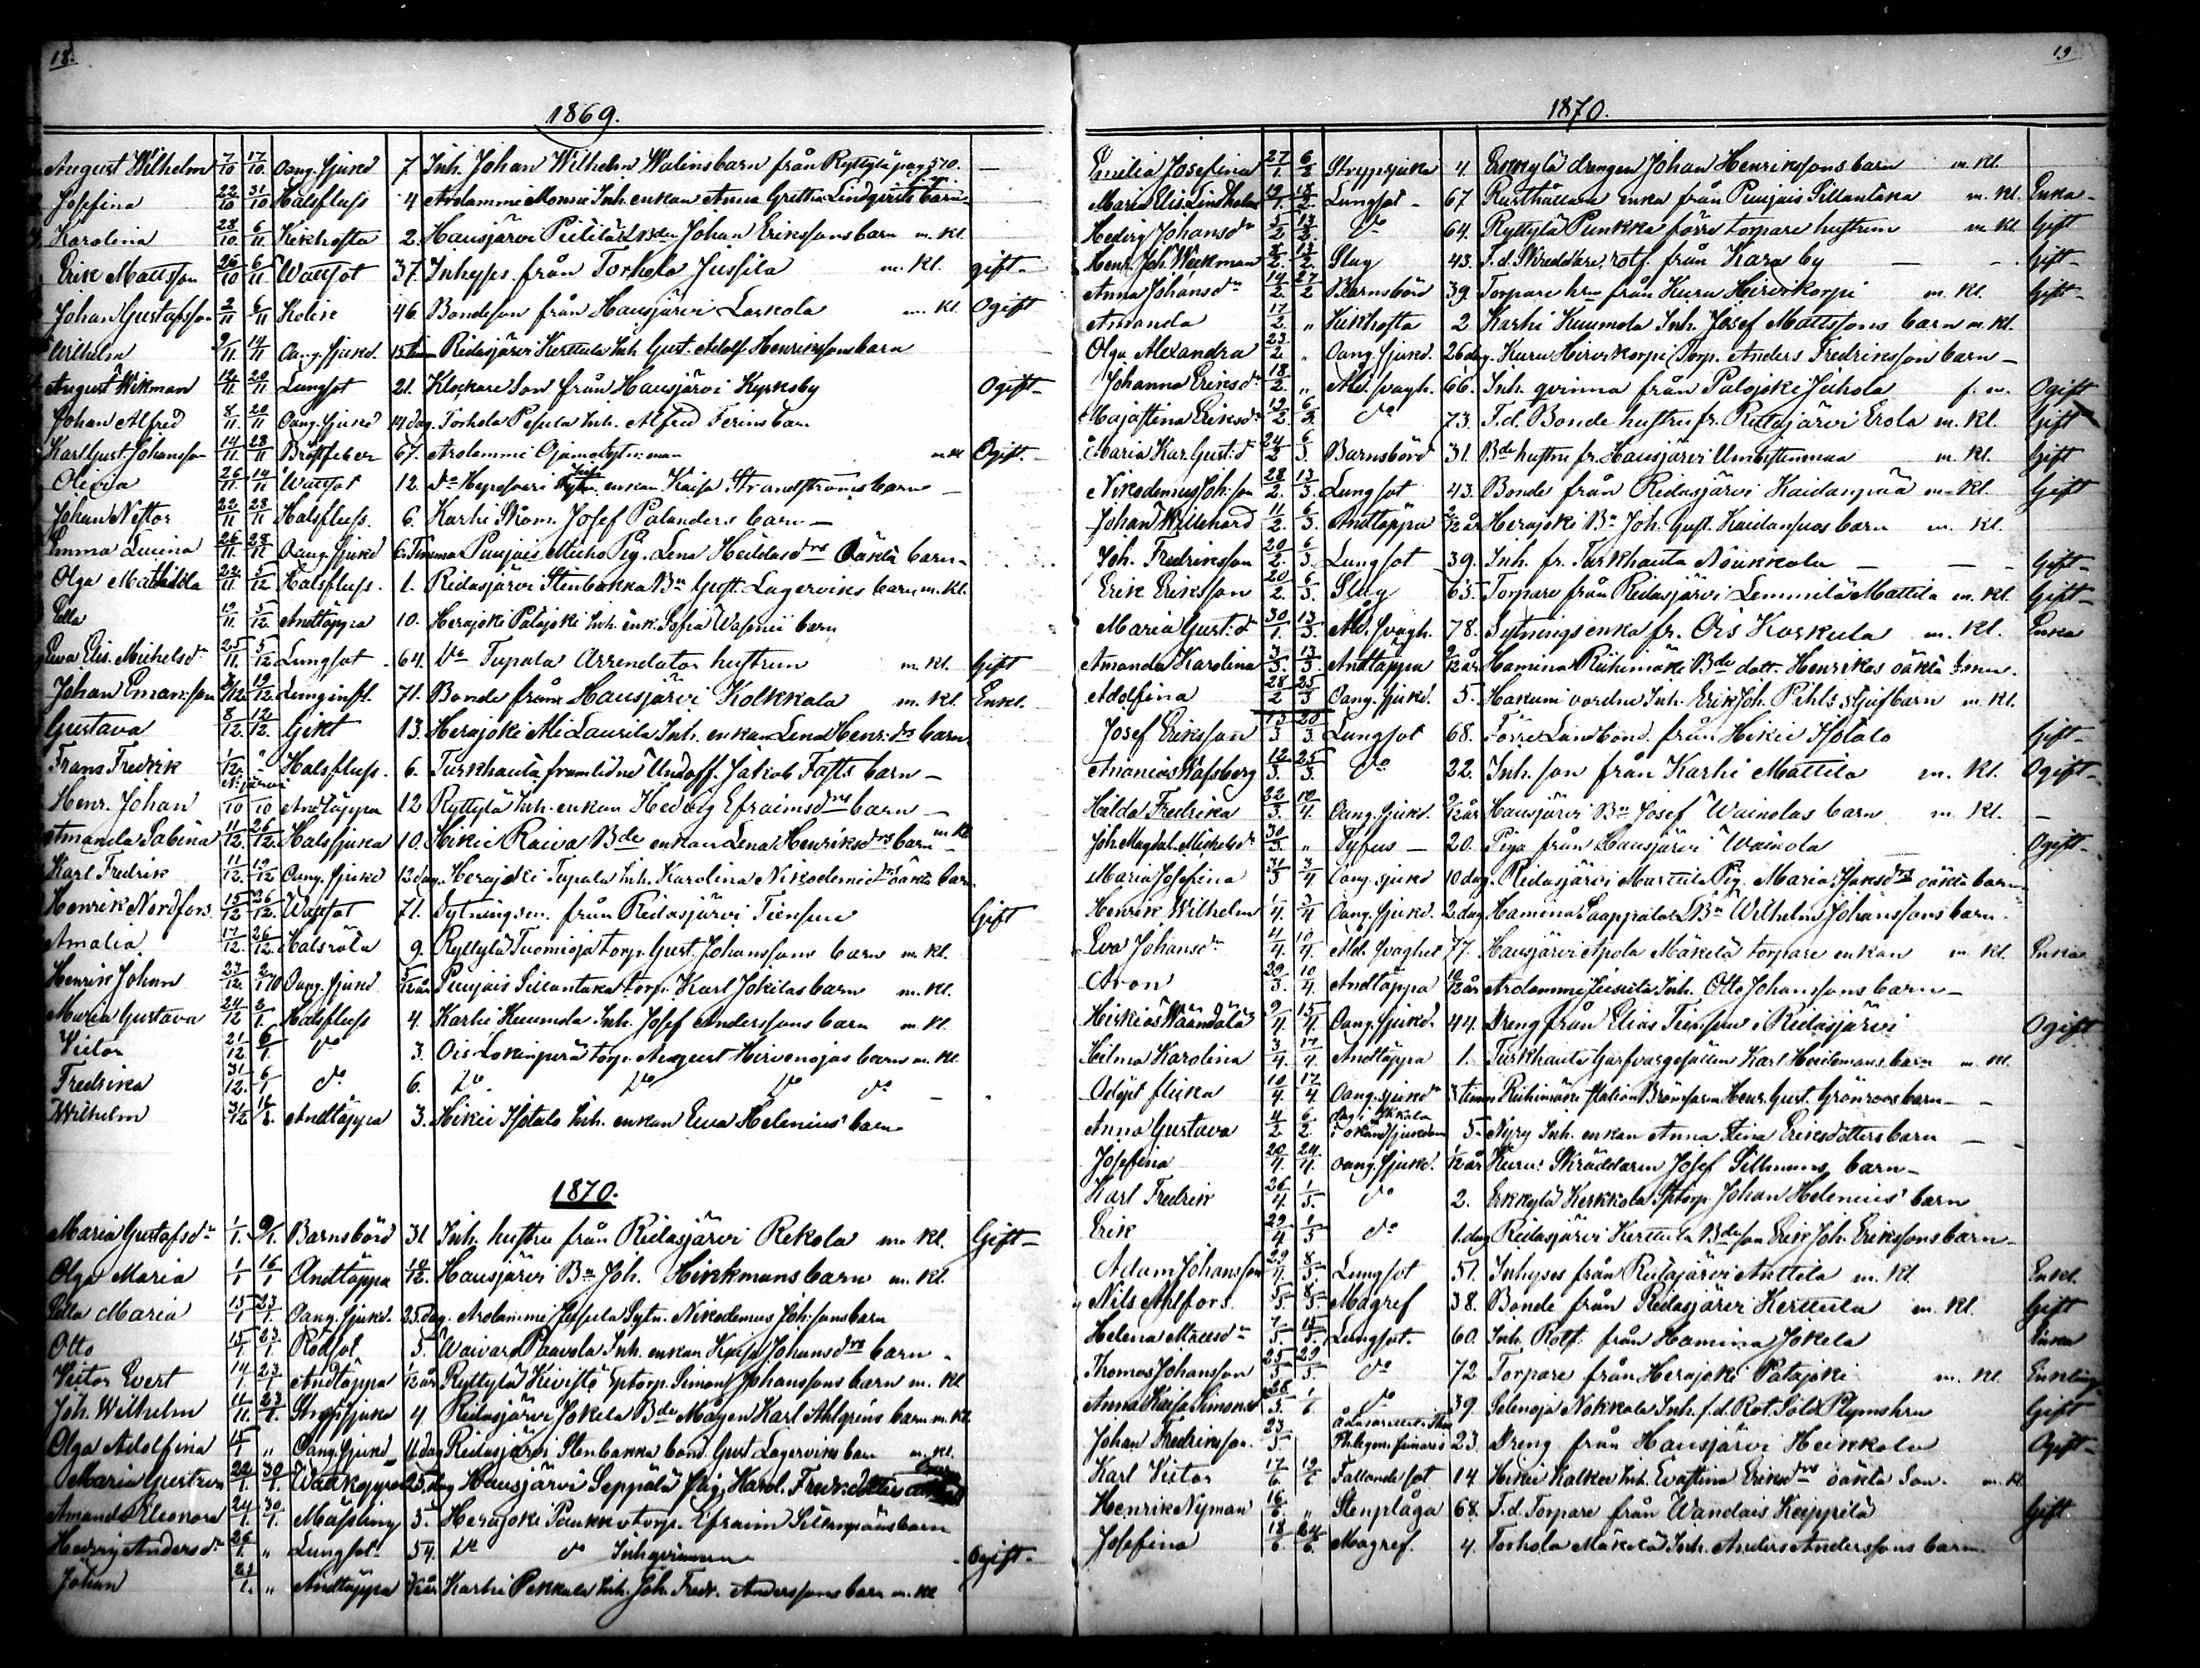 18.
1869.
August Wilhelm 7/10 17/10 Oang. sjukd 7 Inh. Johan Wilhelm Walins barn från Ryttylä pag 570. —
Josefina 22/10 31/10 Halsfluss 4 Arolammi Inh. enkan Anna Greta Lindqvists barn
Karolina 28/10 6/11 Kikhosta 2. Hausjärvi Johan Erikssons barn m. kl.
Erik Mattsson 26/10 6/11 Wattsot 37. Inhyses från Torhola Jussila m. kl. gift
Johan Gustafsson 2/11 6/11 Kolik 46. Bondeson från Hausjärvi Laskola m. kl. Ogift
Wilhelm 9/11 14/11 Oang. sjukd. Ridasjärvi Kerttula Inh. Gust. Adolf Henrikssons barn
August Wikman 12/11 20/11 Lungsot 21. Klockare Son från Hausjärvi Kyrkoby Ogift
Johan Alfred 8/11 20/11 Oang. sjukd 14 dag. Torhola Pesula Inh. Alfred Ferins barn
Karl Gust. Johansson 14/11 28/11 Bröstfeber 67. Arolammi Ojamo Sytn: man m. kl Ogift
Olivia 26/11 14/11 Wattsot 12. do enkan Kaisa Strandströms barn —
Johan Nestor 22/11 23/11 Halsfluss. 6. Karhi Skom. Josef Palanders barn —
Emma Lucina 26/11 28/11 Oang. sjukd 6 Timmar Puujais Pig. Lena oäkta barn
Olga Mathilda 22/11 5/12 Halsfluss. 1. Ridasjärvi Stenbacka Bn Gust. Lagerviks barn m. kl.
Ella 19/11 5/12 Andtäppa 10. Herajoki Patajoki Inh. enk. Sofia barn
Eva Elis. Michelsdr 25/11 5/12 Lungsot 64. do Tupala Arrendator hustrun m. kl. Gift
Johan Eman:son 19/12 Lunginfl. 71. Bonde från Hausjärvi Kolkkala m. kl. Enkl.
Gustava 8/12 12/12 Gikt 13. Herajoki Ali Laurila Inh. enkan Lena Henr:drs barn
Frans Fredrik 1/12 " Halsfluss. 6. Turkhauta framlidne Undoff. Jakob Fasts barn —
Henr. Johan /10 /10 Andtäppa 12 Ryttylä Inh. enkan Hedvig Efraimsdrs barn —
Amanda Sabina 11/12 26/12 Halssjuka 10. Hikiä Raiva Bde enkan Lena Henriksdrs barn m kl
Karl Fredrik 11/12 12/12 Oang. sjukd 12 dag. Herajoki Tupala Inh. Karolina oäkta barn
Henrik Nordfors 15/12 26/12 Wattsot 71. Sytningsm. från Ridasjärvi Tiensuu Gift
Amalia 17/12 26/12 Halsröta 9. Ryttylä Tuomioja torp. Gust. Johanssons barn m. kl.
Henrik Johan 23/12 2/1 70 Oang. sjukd 5/12 år Puujais Sillantaka torp. Karl Jokilas barn m. kl.
Maria Gustava 24/12 2/1 Halsfluss 4. Karhi Kuumola Inh. Josef Anderssons barn m. kl.
Victor 21/12 6/1 do 3. Ois Lokinperä torp. August Hirvenojas barn m. kl
Fredrika 31/12 6/1 do 6. do do do do —
Wilhelm 31/12 16/1 Andtäppa 3. Hikiä Isotalo Inh. enkan Eva Helenius' barn
1870.
Maria Gustafsdr 1/1 9/1 Barnsbörd 31 Inh. hustru från Ridasjärvi Rekola m. kl. Gift
Olga Maria 1/1 16/1 Andtäppa 10/12. Hausjärvi Bn Joh. Hinkmans barn m. kl
Ella Maria 15/1 23/1 Oang. sjukd. 25 dag. Arolammi Seppälä Sytn. Nikodemus Joh:sons barn
Otto 15/1 23/1 Rödsot 5. Waivars Paavola Inh. enkan Kaisa Johansdrs barn
Victor Evert 14/1 23/1 Andtäppa 1/12 år Ryttylä Kivistö torp. Simon Johanssons barn m. kl
Joh. Wilhelm 11/1 23/1 Strypsjuka 4. Ridasjärvi Jokela Bde Mågen Karl Ahlgrens barn m. kl
Olga Adolfina 15/1 " Oang. sjukd 11 dag Ridasjärvi Stenbacka bond. Gust Lagerviks barn m. kl.
Maria Gustava 22/1 30/1 Wattkoppor 25 dag Hausjärvi Seppälä Pig. Karol. Fredr:dotters
Amanda Eleonora 24/1 30/1 Mässling 5. Herajoki Paukku torp. Efraim Sillanpääs barn
Hedvig Andersdr 26/1 " Lungsot 54. do do Inhqvinna Ogift
Johan 23/1 " Andtäppa /12 år Karhi Pekkala Inh. Joh. Fredr. Anderssons barn m. kl
19
1870.
Emilia Josefina 27/1 6/2 Strypsjuka 4. Erkkylä drengen Johan Henrikssons barn m. kl.
Maria Elis. Lindholm 19/1 18/2 Lungsot 67 Rusthållare enka från Puujais Sillantaka m. kl. Enka
Hedvig Johansdr 5/2 13/2 do 64. Ryttylä Punkka förre torpare hustrun m. kl Gift
Henr. Joh. Wikman 8/2 13/2 Slag 43. F.d. Skräddare, rotf. från Kara by — — Gift
Anna Johansdr 14/2 27/2 Barnsbörd 39. Torpare hru från Kuru Hirvikorpi m. kl. Gift
Amanda 17/2 " Kikhosta 2. Karhi Kuumola Inh. Josef Mattssons barn m. kl.
Olga Alexandra 23/2 " Oang. sjukd. 26 dag. Kuru Hirvikorpi Torp. Anders Fredrikssons barn —
Johanna Eriksdr 18/2 " Åld. svagh. 66. Inh. qvinna från Palojoki Juhola Ogift
Majastina Eriksdr 19/2 6/3 do 73. F.d. Bonde hustru fr. Ridasjärvi Erola m. kl. Gift
Maria Kar. Gust:dr 24/2 6/3 Barnsbörd 31. Bde hustru fr. Hausjärvi Umbistenmaa m. kl. Gift
Nikodemus Joh:son 28/2 13/3 Lungsot 43. Bonde från Ridasjärvi Kaidanpää m kl. Gift
Johan Willehard 11/2 6/3 Andtäppa 2/12 år Herajoki Bn Joh. Gust. barn m. kl.
Joh. Fredriksson 20/2 6/3 Lungsot 39. Inh. fr. Turkhauta Noukkala — — Gift
Erik Eriksson 20/2 6/3 Slag 65. Torpare från Ridasjärvi Lemmilä Mattila m. kl. Gift
Maria Gust:dr 30/1 13/3 Åld. svagh. 78. Sytningsenka fr. Ois Koskula m. kl. Enka
Amanda Karolina 3/3 13/3 Andtäppa 9/12 år Hamina Riihimäki Bde dott. Henrikas oäkta barn
Adolfina 28/2 25/3 Oang. sjukd. 5. Hakumi vordne Inh. Erik Joh. Pihls stjufbarn m. kl.
Josef Eriksson 13/3 20/3 Lungsot 68. Förre Landbond. från Hikiä Isotalo Gift
Ananias Wassberg 12/3 25/3 do 22. Inh. son från Karhi Mattila m. kl. Ogift
Hilda Fredrika 22/3 10/4 Oang. sjukd. 9/12 år Hausjärvi Bn Josef Wainolas barn m. kl. —
Joh. Magdal. Michelsdr 30/3 " Tyfus — 20. Piga från Hausjärvi Wainola Ogift
Maria Josefina 31/3 3/4 Oang. sjukd 10 dag. Ridasjärvi Marttila Pig. Maria Isaksdrs oäkta barn
Henrik Wilhelm 3/4. 3/4 Oang. sjukd. 2. dag Hamina Saappala Bn Wilhelm Johanssons barn.
Eva Johansdr 4/4 10/4 Åld. svaghet 77. Hausjärvi Apola Mäkelä torpare enkan m kl. Enka
Aron 29/3 10/4. Andtäppa 10/12 år Arolammi Inh. Otto Johanssons barn —
Hiskias Wäänälä 9/4 15/4 Oang. sjukd. 44. Dreng från Elias Tiensuu i Ridasjärvi Ogift
Hilma Karolina 3/4 17/4 Andtäppa 1. Turkhauta Garfvargesällen Karl barn m. kl.
Odöpt flicka 10/4 17/4 Oang. sjukd 3 timm Riihimäki Station Bromsaren Henr. Gust. Grönroos barn —
Anna Gustava 4/2 6/2 i okänd sjukdom 5. Nyry Inh. enkan Anna Stina Eriksdotters barn —
Josefina 20/4. 24/4 Oang. sjukd. 1/12 år Kuru: Skräddaren Josef Sillmans barn —
Karl Fredrik 26/4. 1/5. do 2. Erkkylä Kerkkola torp. Johan Helenius' barn
Erik 29/4 1/5 do 1. dag Ridasjärvi Kerttula Bde son Erik Joh. Erikssons barn
Adam Johansson 29/4. 8/5. Lungsot 51. Inhyses från Ridasjärvi Anttila m. kl. Enkl.
Nils Ahlfors. 5/5. 8/5. Magref 38. Bonde från Ridasjärvi Kerttula m. kl. Gift
Helena Mattsdr 7/5. 15/5. Lungsot. 60. Inh. Rotf. från Hamina Jokela Enka
Thomas Johansson 25/5. 29/5. do 72 Torpare från Herajoki Patajoki m. kl. Enkling
Anna Kaisa Simonsdr 28/5. 1/6 do 39. Selänoja Nokkala Inh. f.d. Rot. Sold. Gift
Johan Fredriksson. 23/5 23. Dreng från Hausjärvi Heikkola Ogift
Karl Victor 17/6. 19/6 Fallandesot 14 Hikiä Kalkee Inh. Evastina Eriksdrs oäkta Son. m. kl
Henrik Nyman 16/6. " Stenplåga 68. F.d. Torpare från Wandais Keippilä Gift
Josefina 18/6. 24/6. Magref. 4. Torhola Mäkelä Inh. Anders Anderssons barn